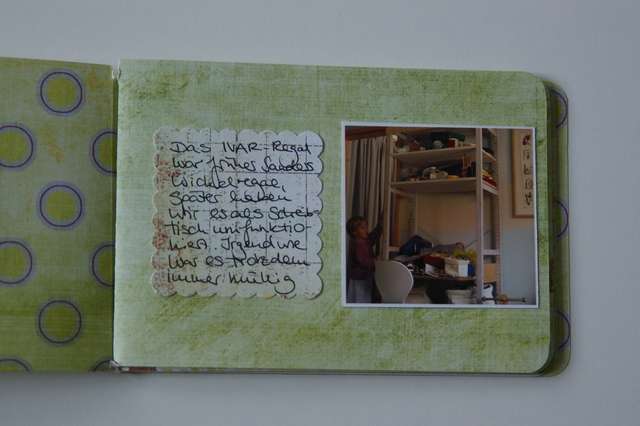 Das IVAR-Regal
war früher Sanders
Wickelregal,
später haben
wir es als Schreib-
tisch umfunktio-
niert. Irgendwie
war es trotzdem
immer müllig